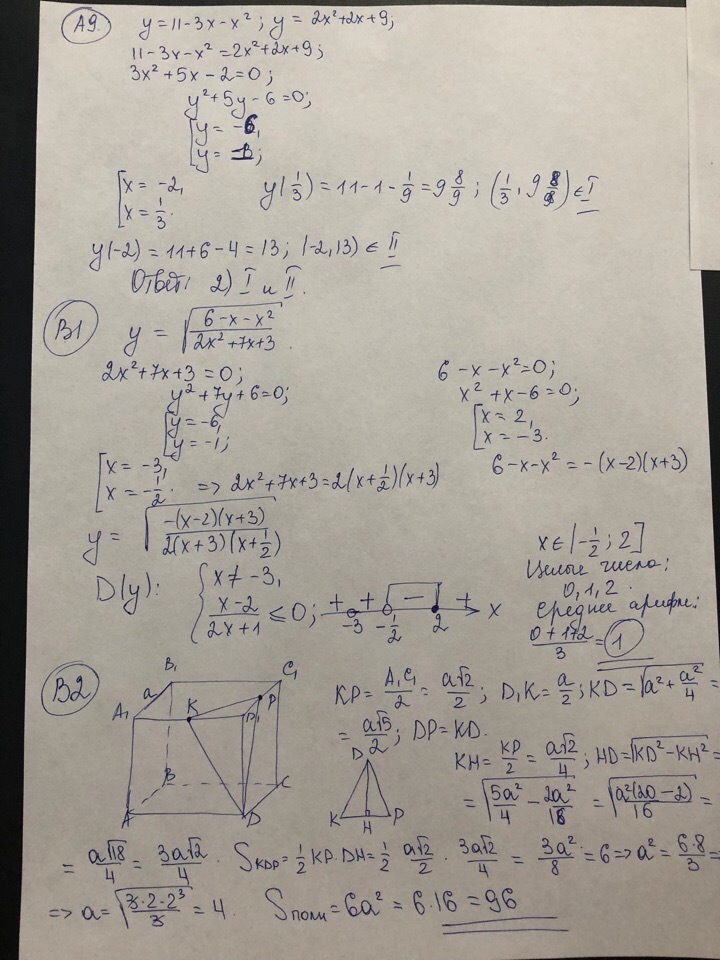 А9. y = 11-3x-x²; y = 2x²+2x+9;
11-3x-x² = 2x²+2x+9;
3x²+5x-2=0;
y²+5y-6=0;
[y = -6,
y = 1;
[x = -2,
x = 1/3.
y(1/3) = 11-1-1/9 = 9 8/9; (1/3, 9 8/9) ∈ I
y(-2) = 11+6-4 = 13; (-2,13) ∈ II
Ответ: 2) I и II.
В1 y = √((6-x-x²)/(2x²+7x+3)).
2x²+7x+3=0;
y²+7y+6=0;
[y=-6,
y=-1;
[x=-3,
x=-1/2. => 2x²+7x+3=2(x+1/2)(x+3)
6-x-x²=0;
x²+x-6=0;
[x=2,
x=-3.
6-x-x² = -(x-2)(x+3)
y = √(-(x-2)(x+3)/(2(x+3)(x+1/2)))
D(y): {x≠-3,
(x-2)/(2x+1) ≤ 0;
+ + - + x
-3 -1/2 2
x∈(-1/2; 2]
Целые числа:
0,1,2.
Среднее арифм.:
(0+1+2)/3 = 1
В2
B₁ C₁ a A₁ K D₁ P B C A D
KP = A₁C₁/2 = a√2/2; D₁K = a/2; KD = √(a²+a²/4) =
= a√5/2; DP=KD.
D K H P
KH = KP/2 = a√2/4; HD = √(KD²-KH²) =
= √(5a²/4 - 2a²/16) = √(a²(20-2)/16) =
= a√18/4 = 3a√2/4. S KDP = 1/2 KP·DH = 1/2 a√2/2 · 3a√2/4 = 3a²/8 = 6 => a² = 6·8/3 =
=> a = √(3·2·2³/3) = 4. Sполн = 6a² = 6·16 = 96